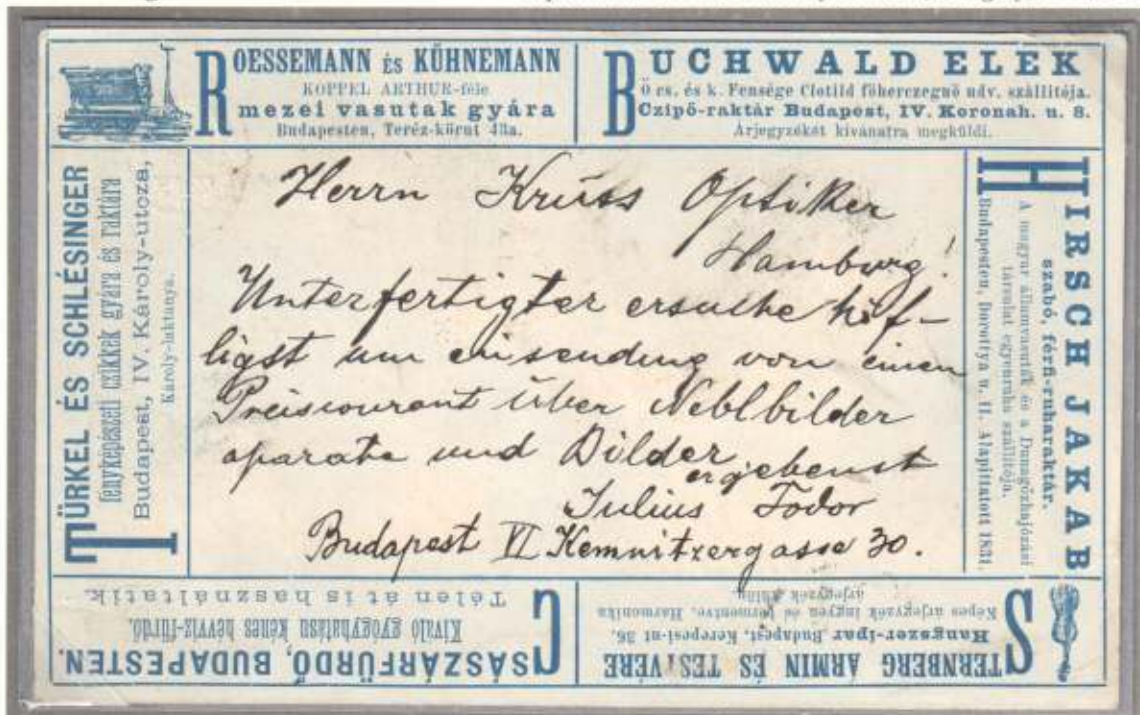 ROESSEMANN ÉS KÜHNEMANN
KOPPEL ARTHUR-féle
mezei vasutak gyára
Budapesten, Teréz-körut
BUCHWALD ELEK
Ő cs. és k. Fensége Clotild főherczegnő udv. szállitója.
Czipő-raktár Budapest, IV. Koronah. u. 8.
Árjegyzékét kivánatra megküldi.
TÜRKEL ÉS SCHLÉSINGER
fényképészeti czikkek gyára és raktára
Budapest, IV. Károly-utcza,
Károly-laktanya.
Herrn Krüss Optiker
Hamburg!
Unterfertigter ersuche höf-
ligst um einsendung von einen
Preiscourant über Neblbilder
aparate und Bilder
ergebenst
Julius Fodor
Budapest VI Kemnitzergasse 30.
HIRSCH JAKAB
szabó, férfi-ruharaktár.
A magyar államvasuták és a Dunagőzhajózási
társulat egyenruha szállitója.
Budapesten, Dorottya u. 11. Alapittatott 1831.
CSÁSZÁRFÜRDŐ, BUDAPESTEN.
Kiváló gyógyhatásu kénes hévviz-fürdő.
Télen át is használtatik.
STERNBERG ÁRMIN ÉS TESTVÉRE
Hangszer-ipar Budapest, Kerepesi-ut 36.
Képes árjegyzék ingyen és bérmentve, Harmonika
árjegyzék külön.